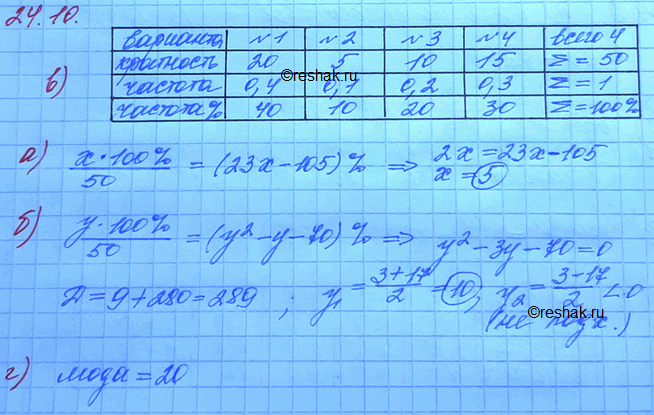 24.10.
в)
варианта №1 №2 №3 №4 всего 4
кратность 20 5 10 15 Σ = 50
частота 0,4 0,1 0,2 0,3 Σ = 1
частота % 40 10 20 30 Σ = 100%
©reshak.ru
а) x·100% / 50 = (23x−105)% ⇒ 2x = 23x−105
x = 5
б) y·100% / 50 = (y²−y−70)% ⇒ y²−3y−70=0
Д = 9+280 = 289 ; y₁ = 3+17 / 2 = 10, y₂ = 3−17 / 2 < 0
(не подх.)
©reshak.ru
г) мода = 20